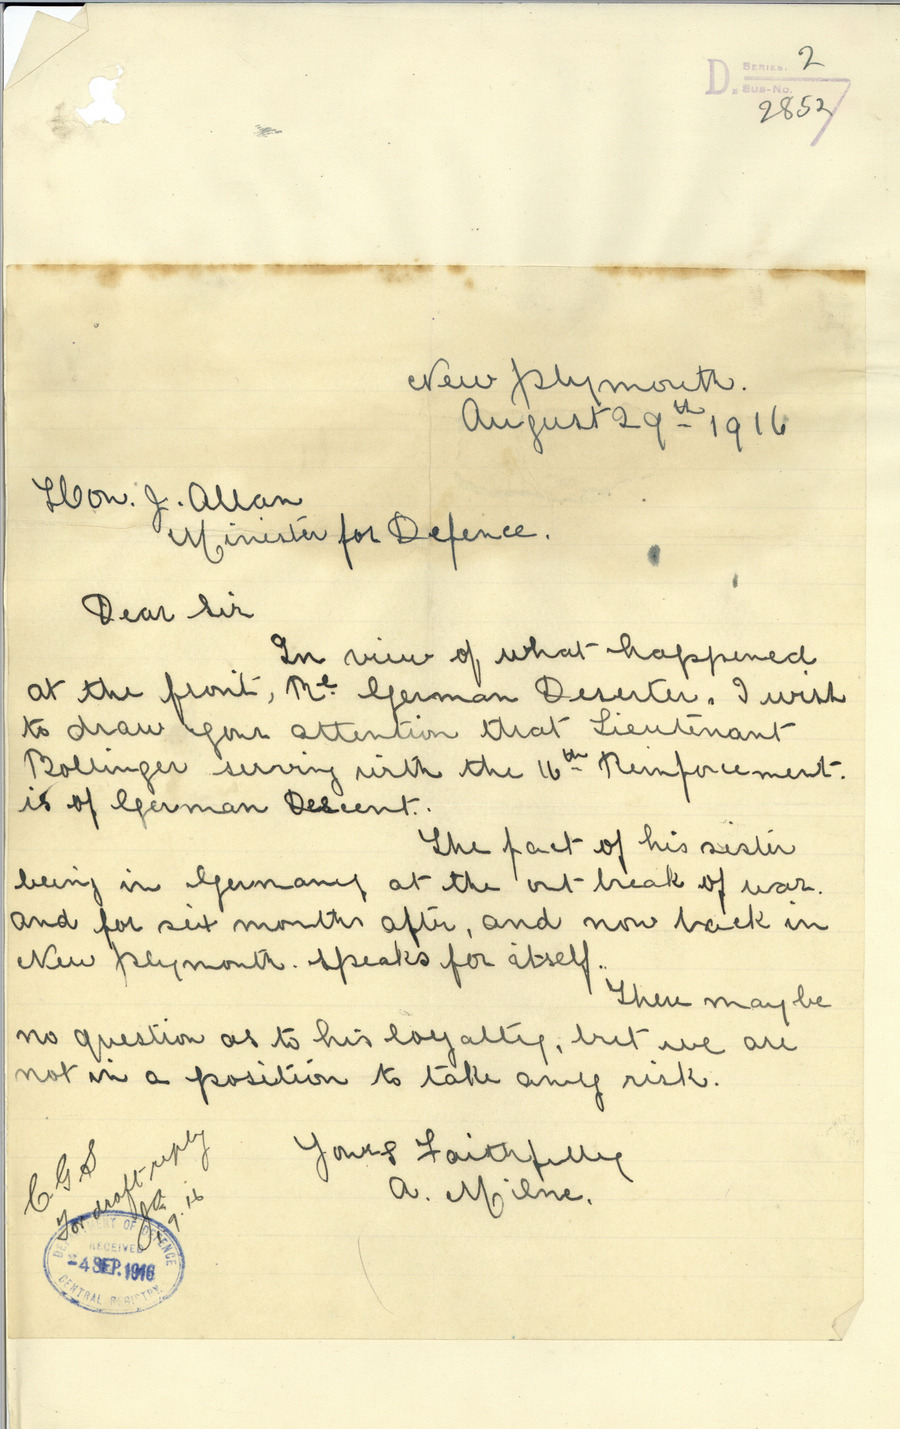 D. SERIES. 2
SUB-NO.
2852
New Plymouth.
August 29th 1916
Hon. J. Allan
Minister for Defence.
Dear Sir
In view of what happened
at the front, Re. German Deserter. I wish
to draw your attention that Lieutenant
Bollinger serving with the 16th Reinforcement.
is of German Descent.
The fact of his sister
being in Germany at the out break of war.
and for six months after, and now back in
New Plymouth. speaks for itself.
There may be
no question as to his loyalty, but we are
not in a position to take any risk.
Yours Faithfully
A. Milne.
CGS
For draft reply
9.16
DEPARTMENT OF DEFENCE
RECEIVED
-4 SEP. 1916
CENTRAL REGISTRY